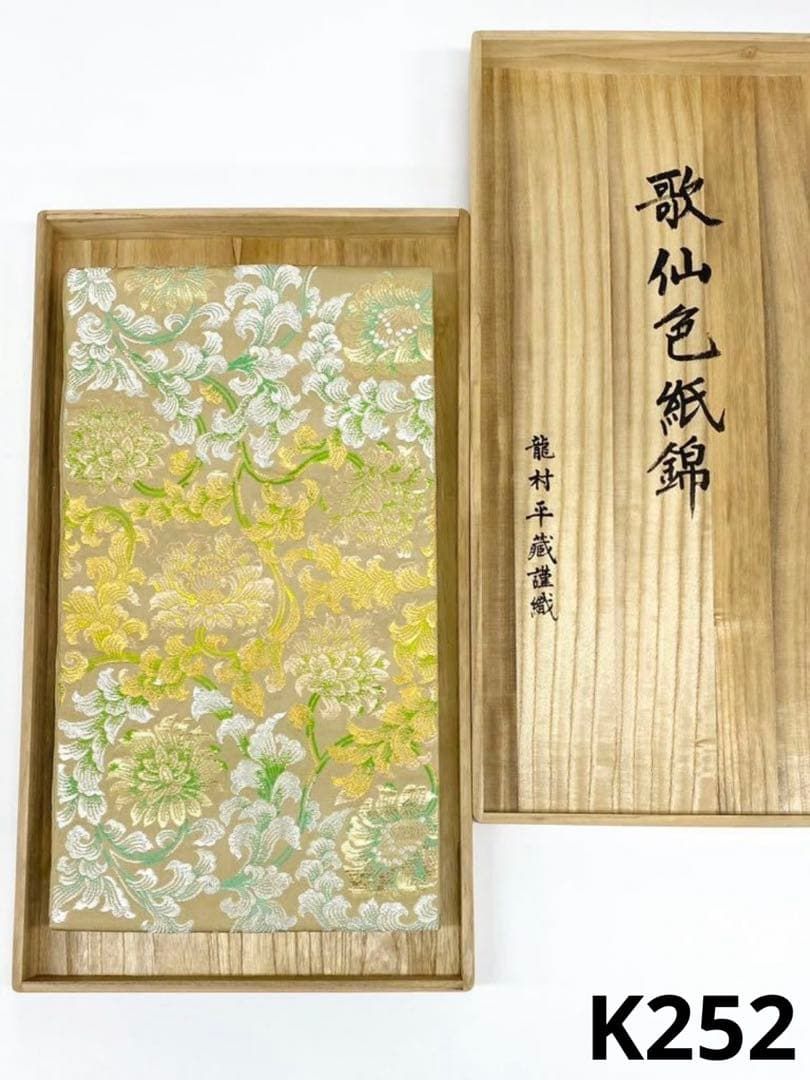 歌仙色紙錦
龍村平藏謹織
K252